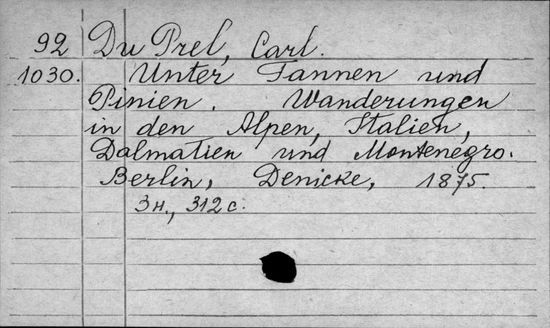 92 Du Prel, Carl.
1030. Unter Tannen und
Pinien. Wanderungen
in den Alpen, Italien,
Dalmatien und Montenegro.
Berlin, Denicke, 1875.
3н., 312 с.